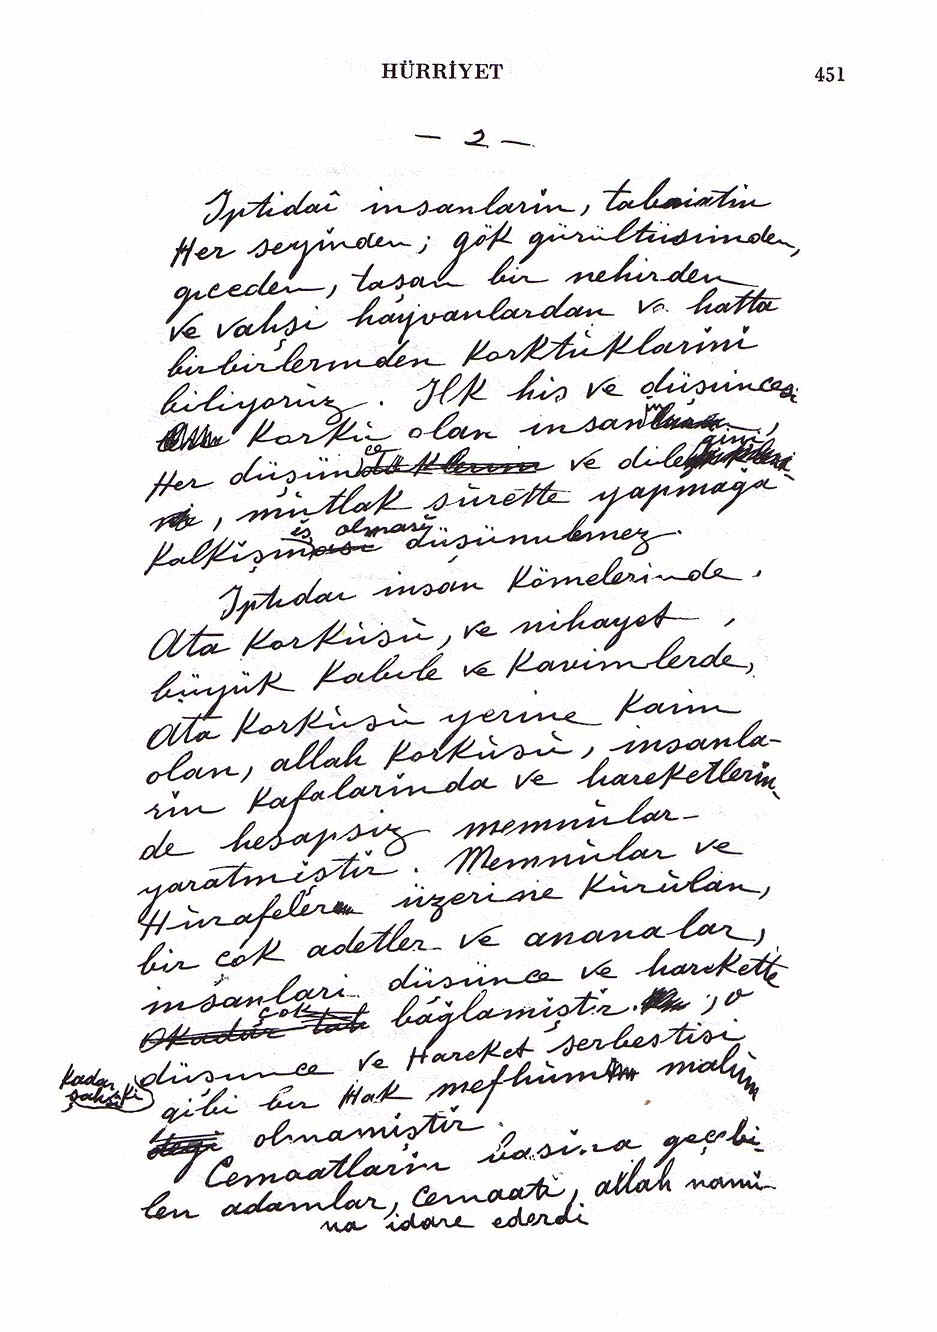 HÜRRİYET 451
— 2 —
Iptidaî insanların, tabiatin
Her şeyinden; gök gürültüsünden,
geceden, taşan bir nehirden
ve vahşi hayvanlardan ve hatta
birbirlerinden korktuklarını
biliyoruz. Ilk his ve düşüncesi
korku olan insanın,
Her düşünce ve dileğini
, mutlak surette yapmağa
kalkışmış olması düşünülemez.
Iptidai insan kömelerinde,
Ata korkusu, ve nihayet,
büyük kabile ve kavimlerde,
Ata korkusu yerine kaim
olan, allah korkusu, insanla-
rın kafalarında ve hareketlerin-
de hesapsız memnular
yaratmıştır. Memnular ve
Hurafeler üzerine kurulan,
bir çok adetler ve ananalar,
insanları düşünce ve harekette
çok bağlamıştır; o
kadar ki düşünce ve Hareket serbestisi
şahsi gibi bir Hak mefhum malûm
olmamıştır.
Cemaatların başına geçebi-
len adamlar, cemaati, allah namı-
na idare ederdi